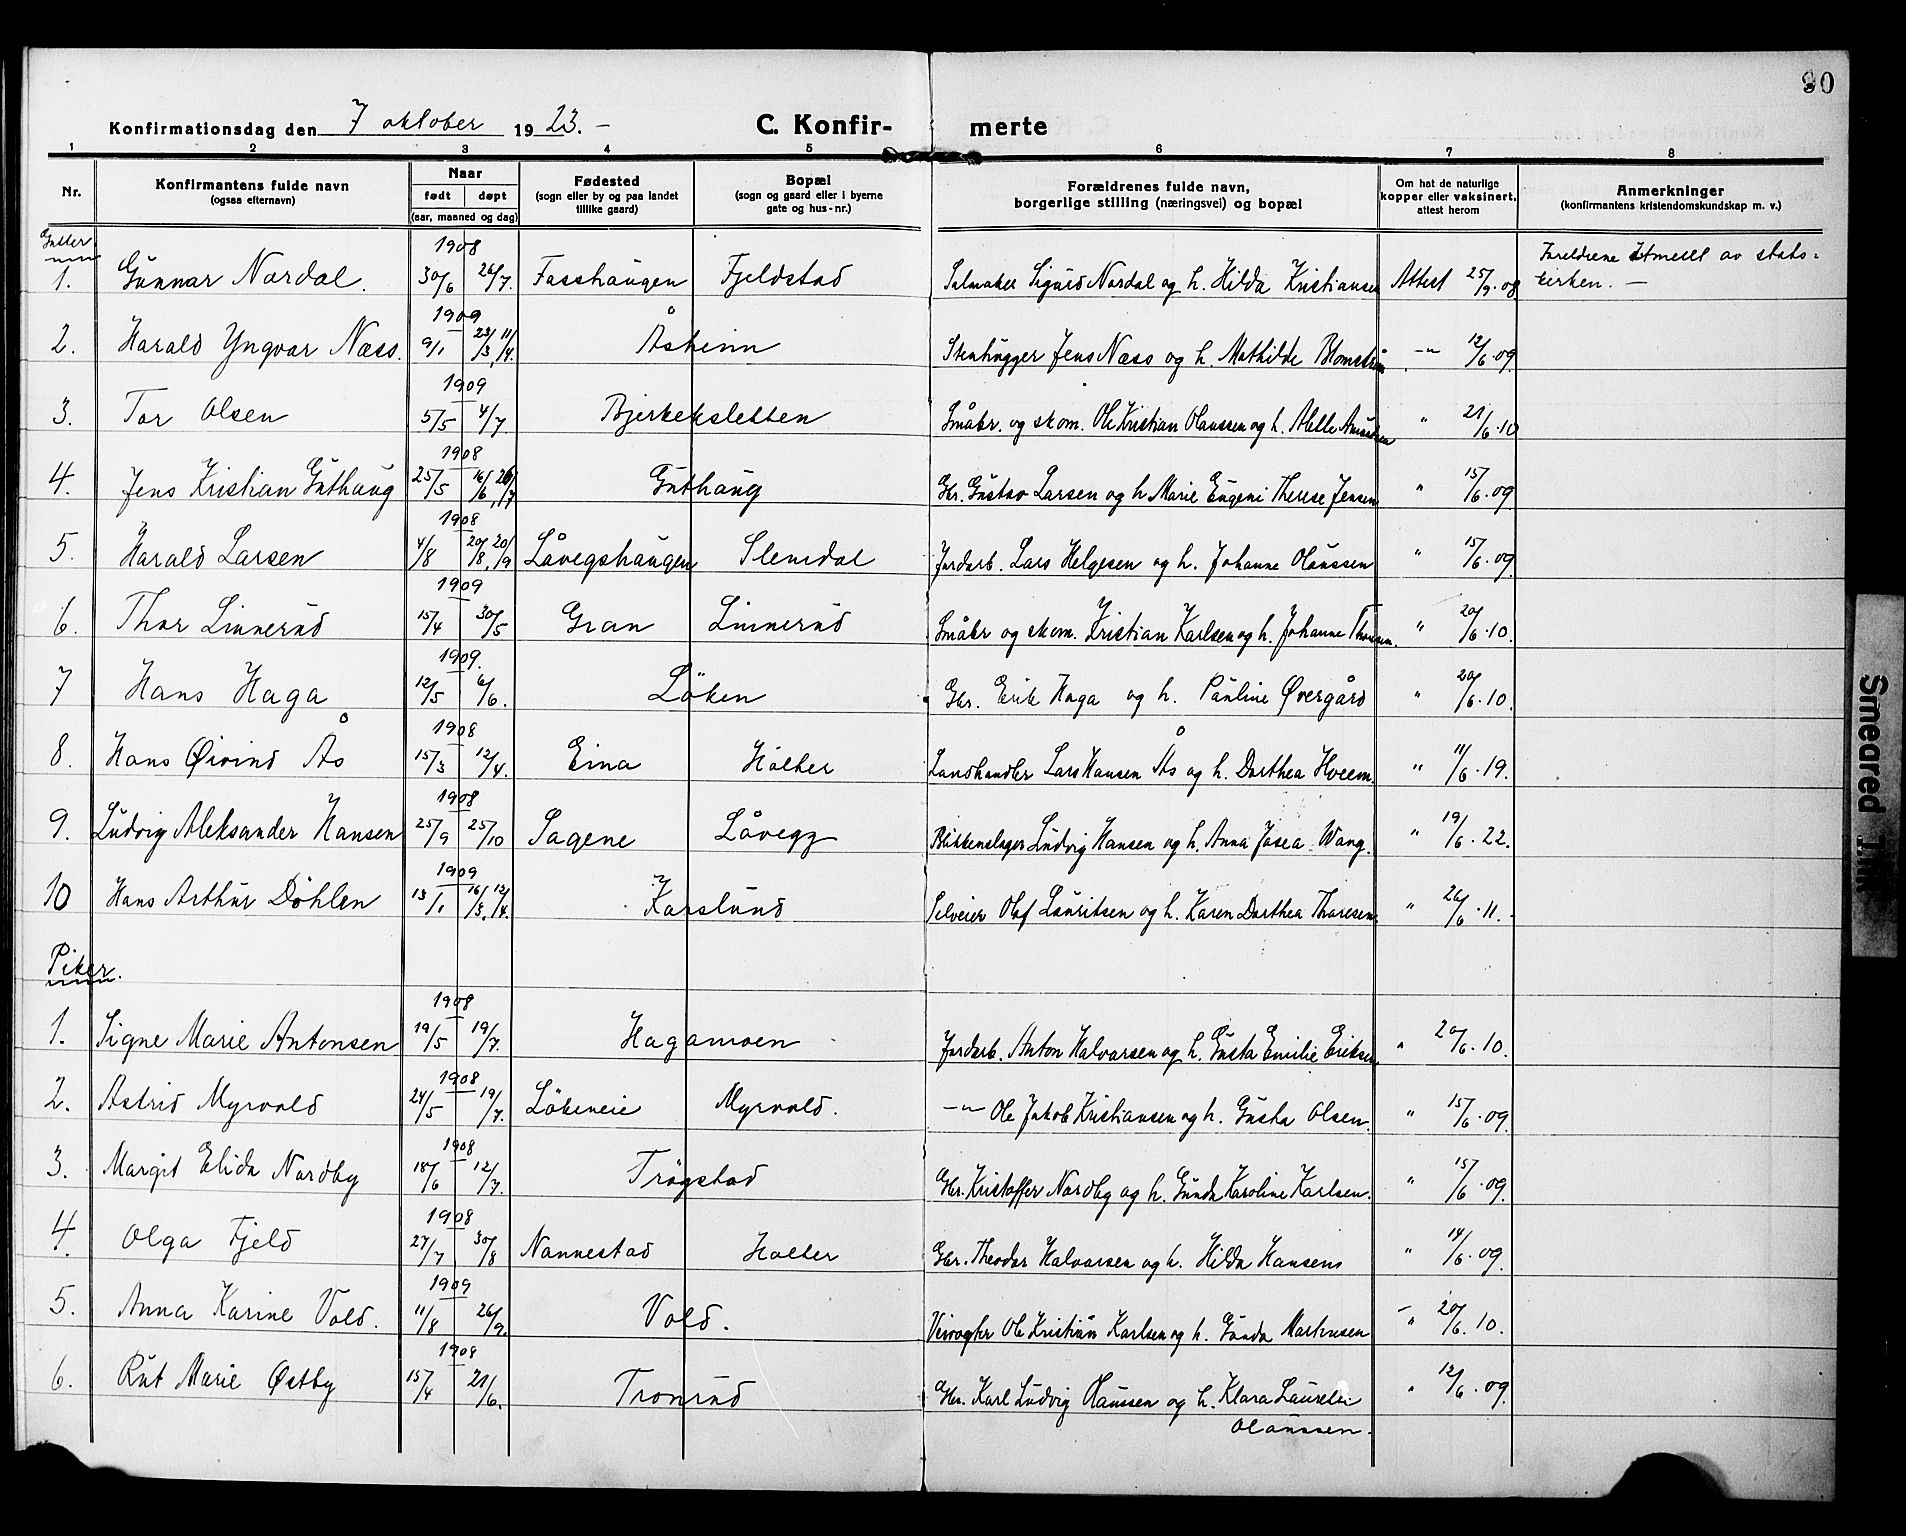 90
Konfirmationsdag den 7 oktober 1923.-
C. Konfir-merte
1 2 3 4 5 6 7 8
Nr.
Konfirmantens fulde navn (ogsaa efternavn)
Naar født døpt (aar, maaned og dag)
Fødested (sogn eller by og paa landet tillike gaard)
Bopæl (sogn og gaard eller i byerne gate og hus-nr.)
Forældrenes fulde navn, borgerlige stilling (næringsvei) og bopæl
Om hat de naturlige kopper eller vaksinert, attest herom
Anmerkninger (konfirmantens kristendomskundskap m. v.)
Gutter
1. Gunnar Nordal. 1908 30/6 26/7. Fasshaugen Fjeldstad Salmaker Sigurd Nordal og h. Hilda Kristiansen Attest 25/9.08. Foreldrene utmeldt av stats-kirken. -
2. Harald Yngvar Næss. 1909 9/1 23/3, 11/4. Åsheim Stenhugger Jens Næss og h. Mathilde Blomstrøm -"- 12/6.09.
3. Tor Olsen 1909 5/5 4/7. Bjerkesletten Småbr. og skom. Ole Kristian Olaussen og h. Alette Amundsen " 21/6.10
4. Jens Kristian Guthaug 1908 25/5 16/6, 26/7 Guthaug Gbr. Gustav Larsen og h Marie Eugeni Therese Jensen " 15/6.09
5. Harald Larsen 1908 4/8 20/8, 20/9 Låvegshaugen Slemdal Jordarb. Lars Helgesen og h. Johanne Olaussen " 15/6.09.
6. Thor Linnerud 1909 15/4 30/5 Gran Linnerud Småbr og skom. Kristian Karlsen og h. Johanne Thorsen. " 20/6.10.
7 Hans Haga 1909. 12/5 6/6. Löken Gbr. Erik Haga og h. Pauline Övergård " 20/6.10.
8. Hans Øivind Ås 1908 15/3 12/4. Eina Holter Landhandler Lars Hansen Ås og h. Dorthea Hveem. " 11/6.19.
9. Ludvig Aleksander Hansen 1908 25/9 25/10 Sagene Låvegg Blikkenslager Ludvig Hansen og h. Anna Josea Wang. " 19/6.22.
10 Hans Arthur Döhlen 1909 13/1 16/3, 12/4. Karslund Selveier Olaf Lauritsen og h. Karen Dorthea Thoresen. " 26/6.11.
Piker.
1. Signe Marie Antonsen 1908 19/5 19/7. Hagamoen Jordarb. Anton Halvorsen og h. Gusta Emilie Eriksen " 20/6.10.
2. Astrid Myrvold 1908 24/5 19/7. Lökeneie Myrvold. -"- Ole Jakob Kristiansen og h. Gusta Olsen. " 15/6.09.
3. Margit Elida Nordby 1908 18/6 12/7. Trögstad Gbr. Kristoffer Nordby og h. Gunda Karoline Karlsen. " 15/6.09.
4. Olga Fjeld 1908 27/7 30/8 Nannestad Holter Gbr. Theodor Halvorsen og h. Hilda Hansens " 14/6.09.
5. Anna Karine Vold. 1909 11/8 26/9. Vold. Veivogter Ole Kristian Karlsen og h. Gunda Martinsen " 20/6.10.
6. Rut Marie Østby 1908 15/4 21/6. Tronrud Gbr. Karl Ludvig Olaussen og h. Klara Laurelie " 12/6.09.
Olaussen.
Smeared Ink